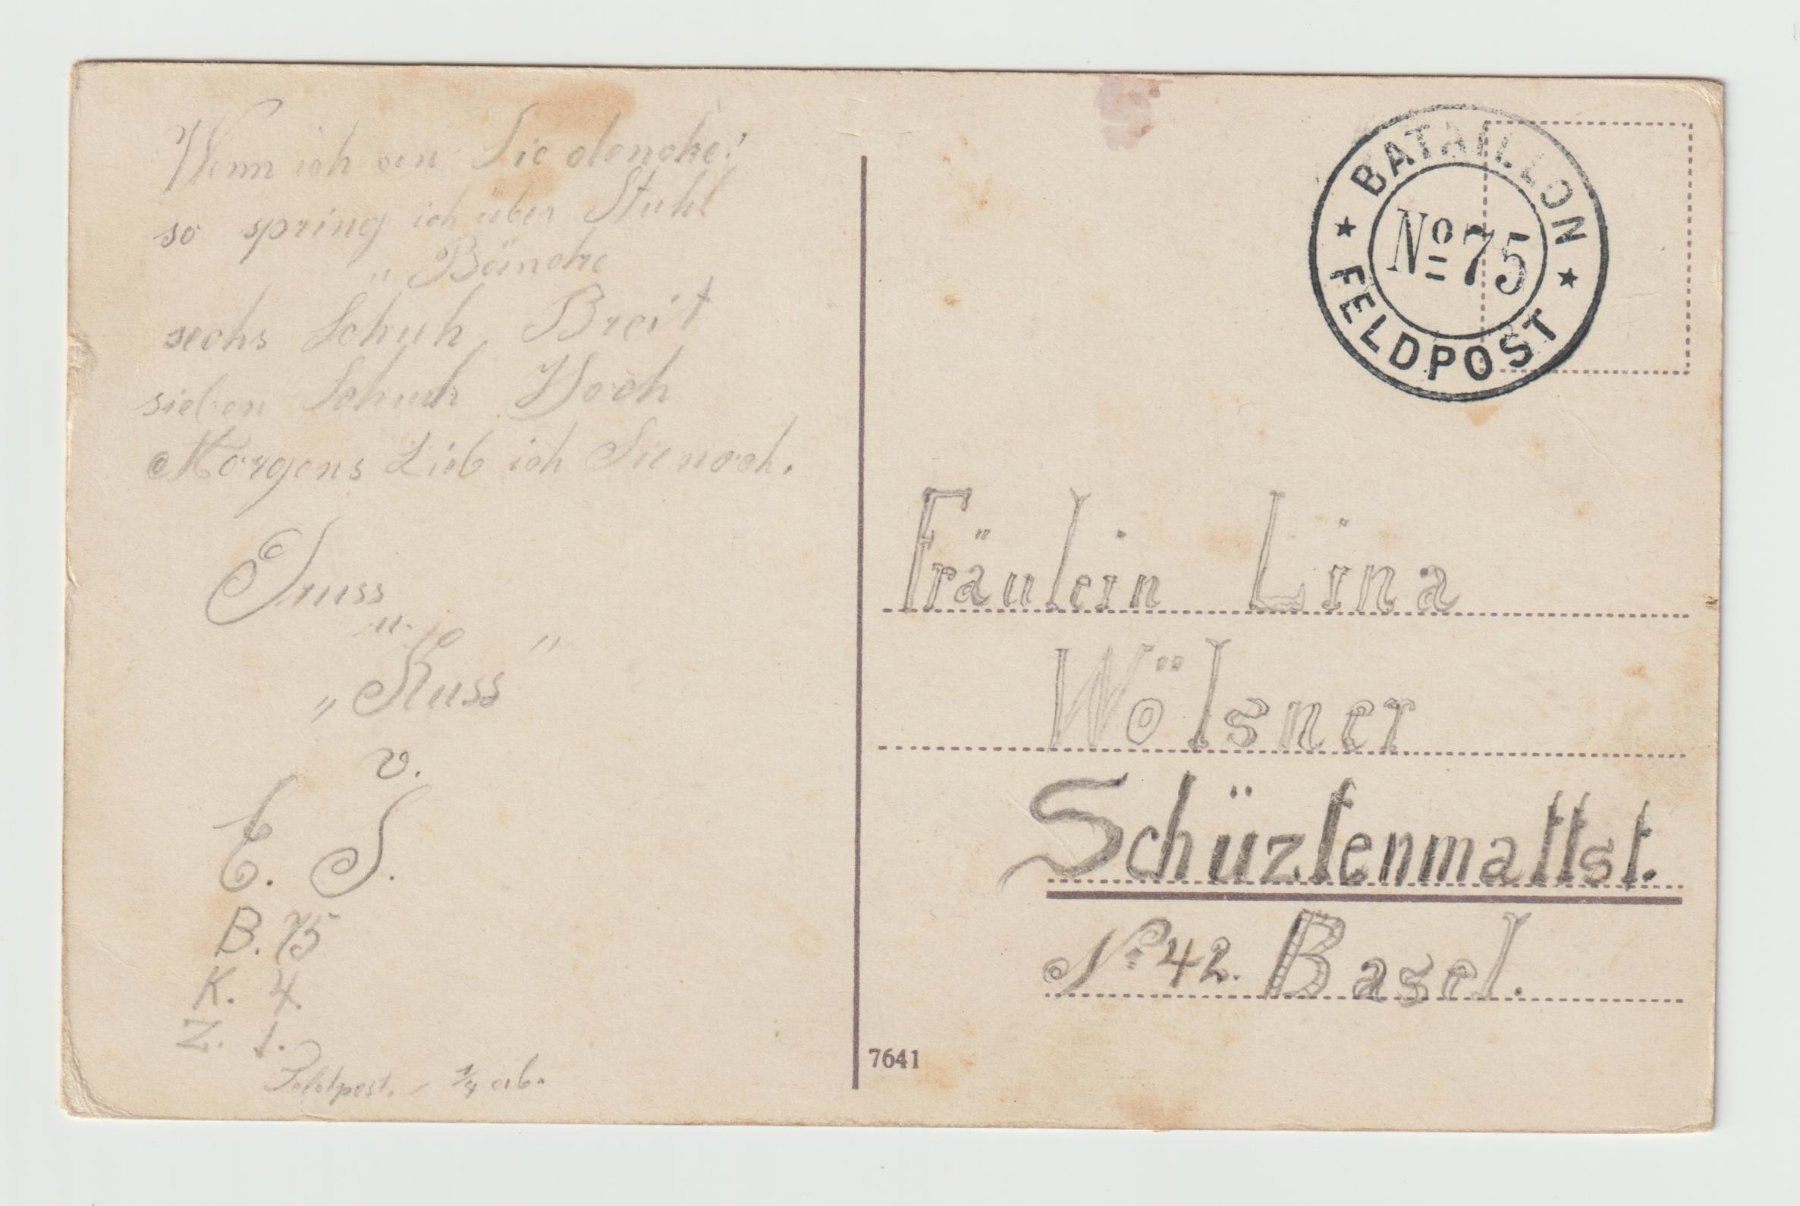 Wenn ich an Sie denke!
so spring ich über Stuhl
" Bänche
sechs Schuh Breit
sieben Schuh Hoch
Morgens Lieb ich Sie noch.
Gruss
u.
„Kuss"
v.
E. S.
B. 75
K. 4.
Z. 1.
Feldpost.
BATAILLON
No 75
FELDPOST
Fräulein Lina
Wölsner
Schüztenmattst.
No 42. Basel.
7641